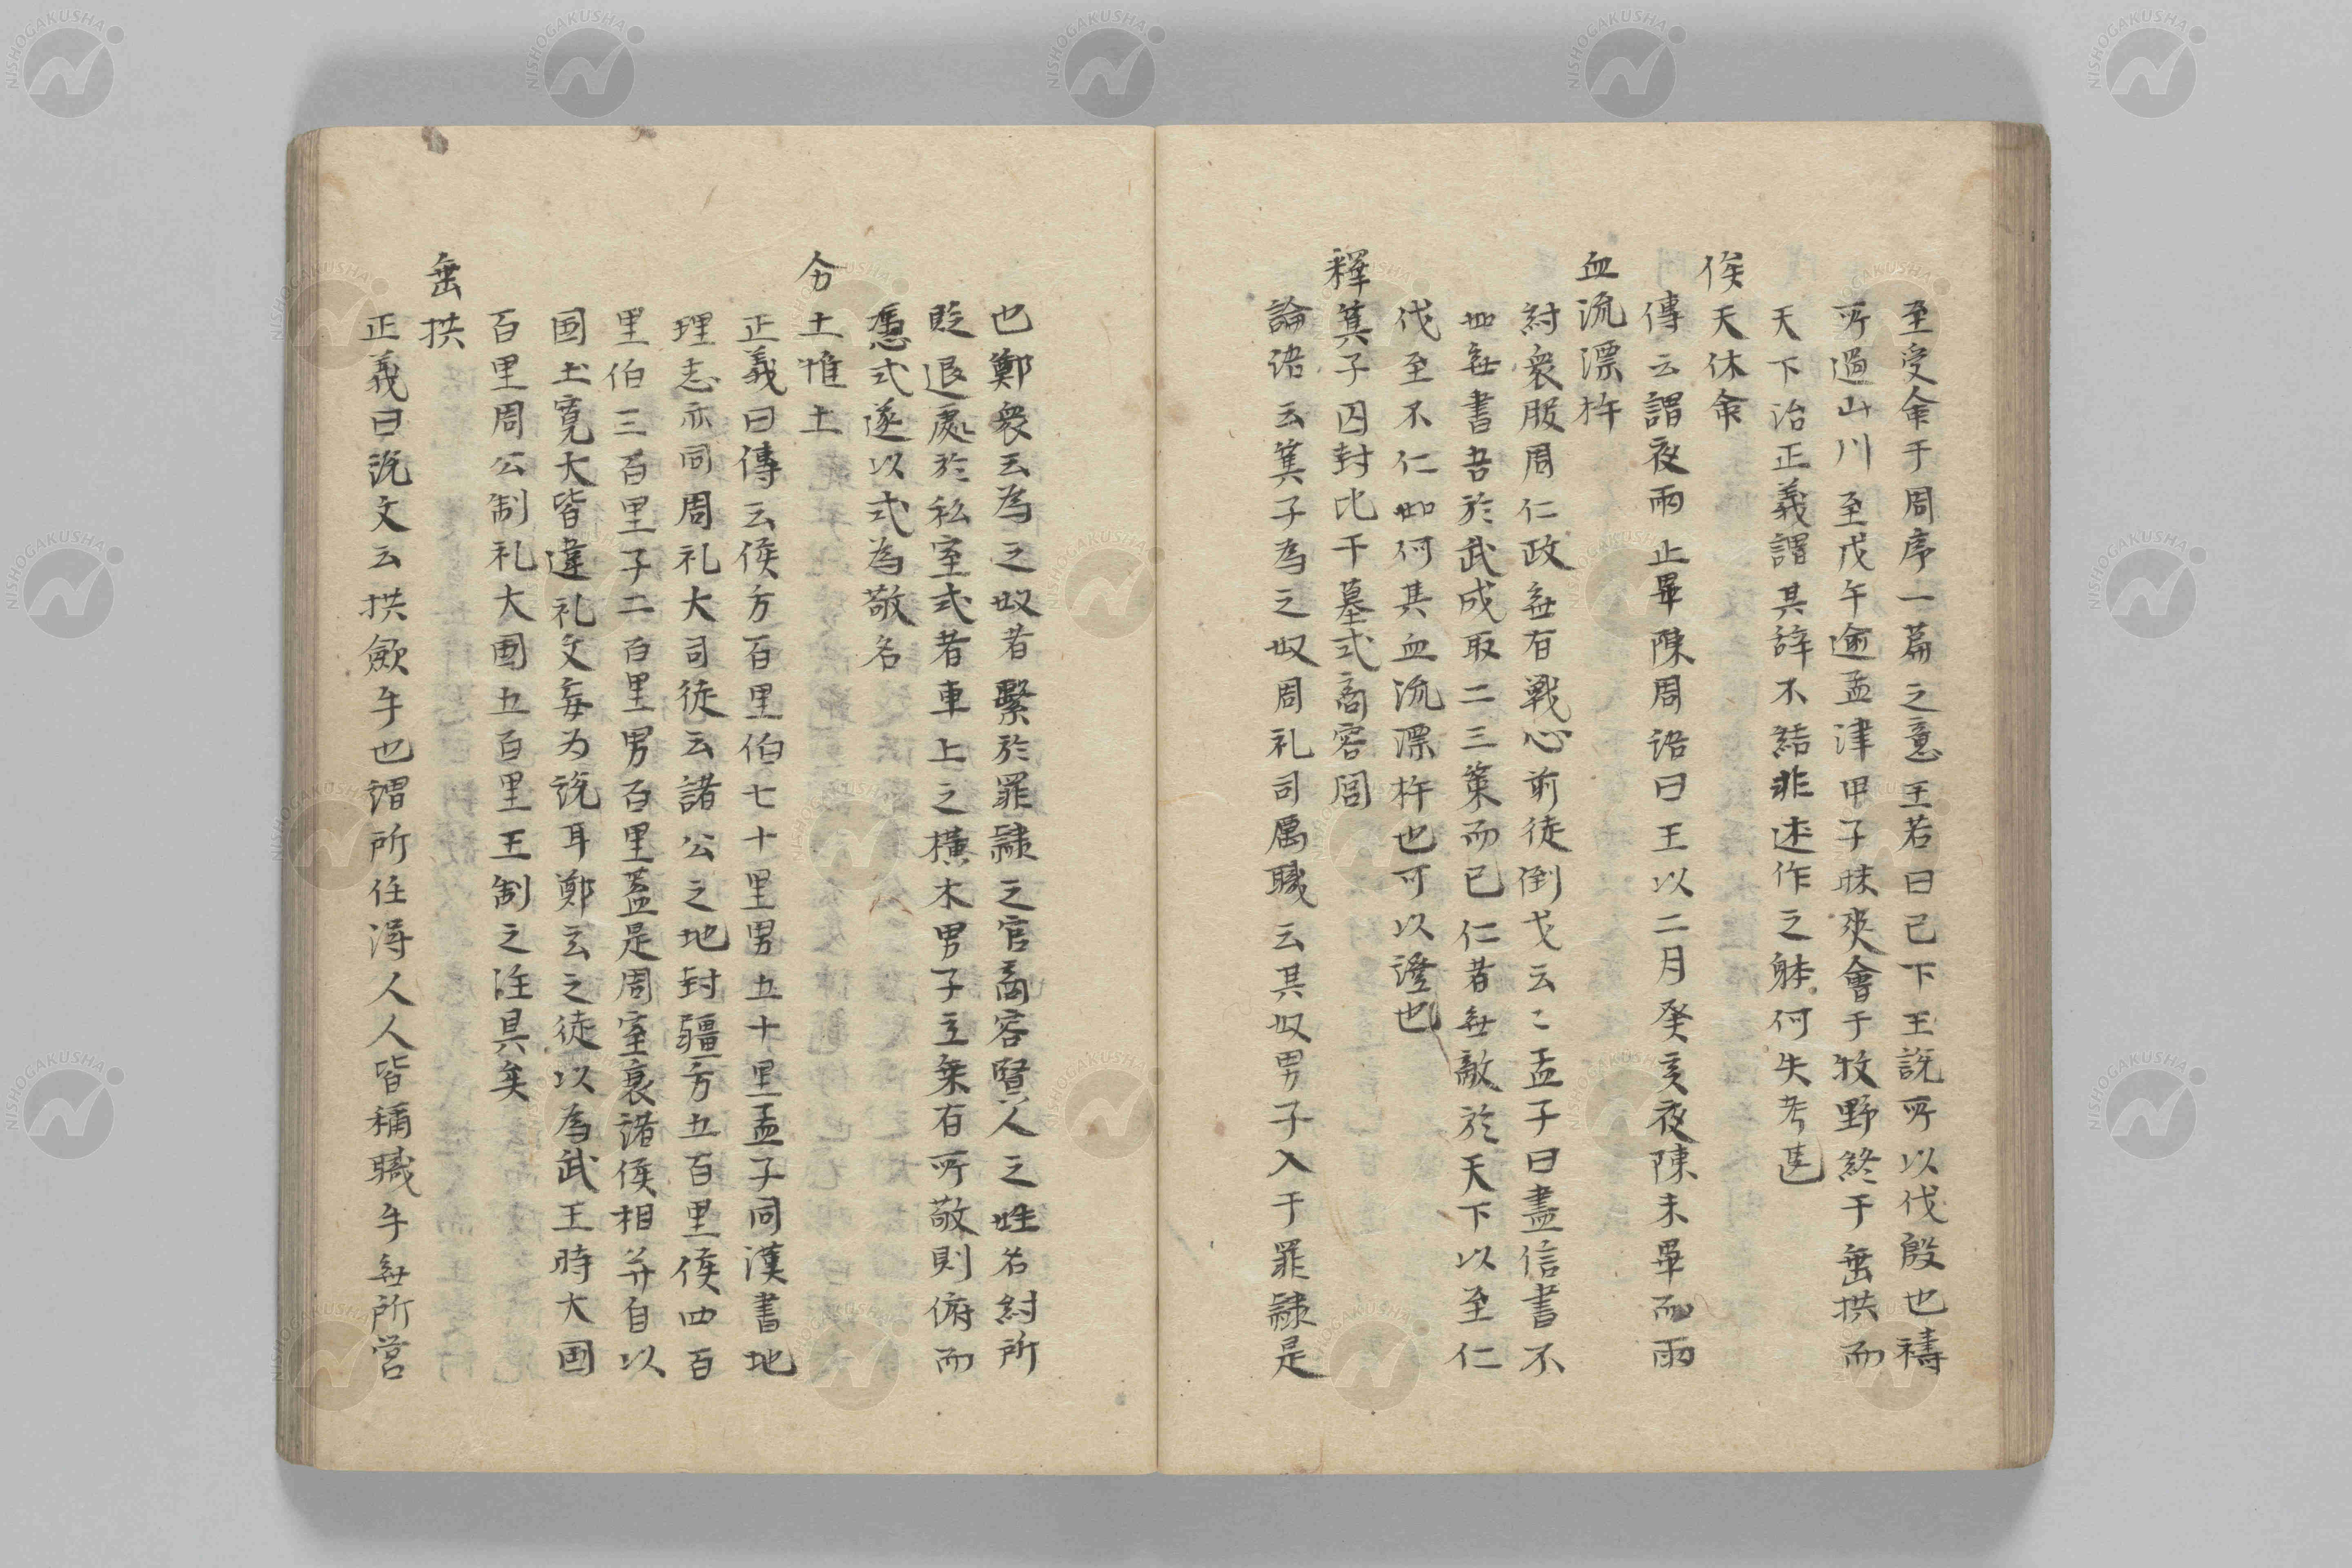 至受命于周序一篇之意王若曰已下王説所以伐殷也禱
所過山川至戊午逾孟津甲子昧爽會于牧野終于垂拱而
天下治正義謂其辞不結非述作之躰何失考甚
俟天休命
傳云謂夜雨止畢陳周語曰王以二月癸亥夜陳未畢而雨
血流漂杵
紂衆服周仁政無有戦心前徒倒戈云〻孟子曰盡信書不
如無書吾於武成取二三策而已仁者無敵於天下以至仁
伐至不仁如何其血流漂杵也可以證也
釋箕子囚封比干墓式商容閭
論語云箕子為之奴周礼司厲職云其奴男子入于罪隷是
也鄭衆云為之奴者繫於罪隷之官商容賢人之姓名紂所
貶退處於私室式者車上之横木男子立乗有所敬則俯而
憑式遂以式為敬名
分土惟土
正義曰傳云侯方百里伯七十里男五十里孟子同漢書地
理志亦同周礼大司徒云諸公之地封疆方五百里侯四百
里伯三百里子二百里男百里蓋是周室衰諸侯相并自以
国土寛大皆違礼文妄为説耳鄭玄之徒以為武王時大国
百里周公制礼大国五百里王制之注具矣
垂拱
正義曰説文云拱斂手也謂所任得人人皆稱職手無所営
NISHOGAKUSHA